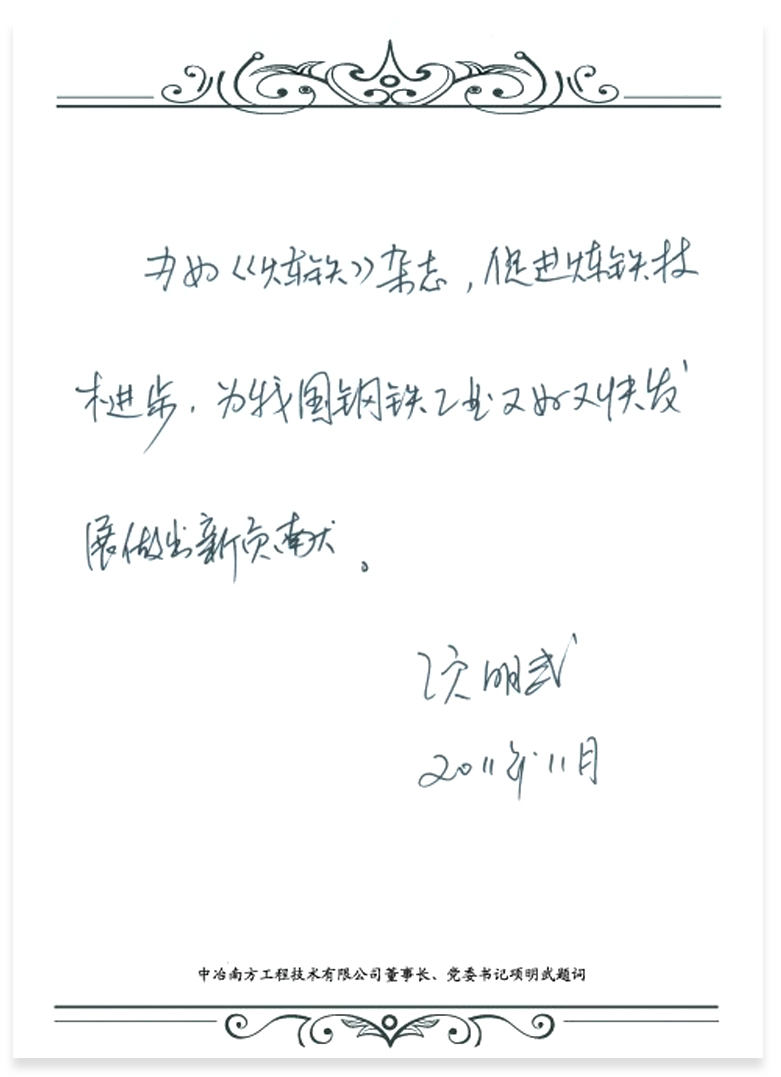 办好《炼铁》杂志,促进炼铁技
术进步,为我国钢铁工业又好又快发
展做出新贡献。
项明武
2011年11月
中冶南方工程技术有限公司董事长、党委书记项明武题词